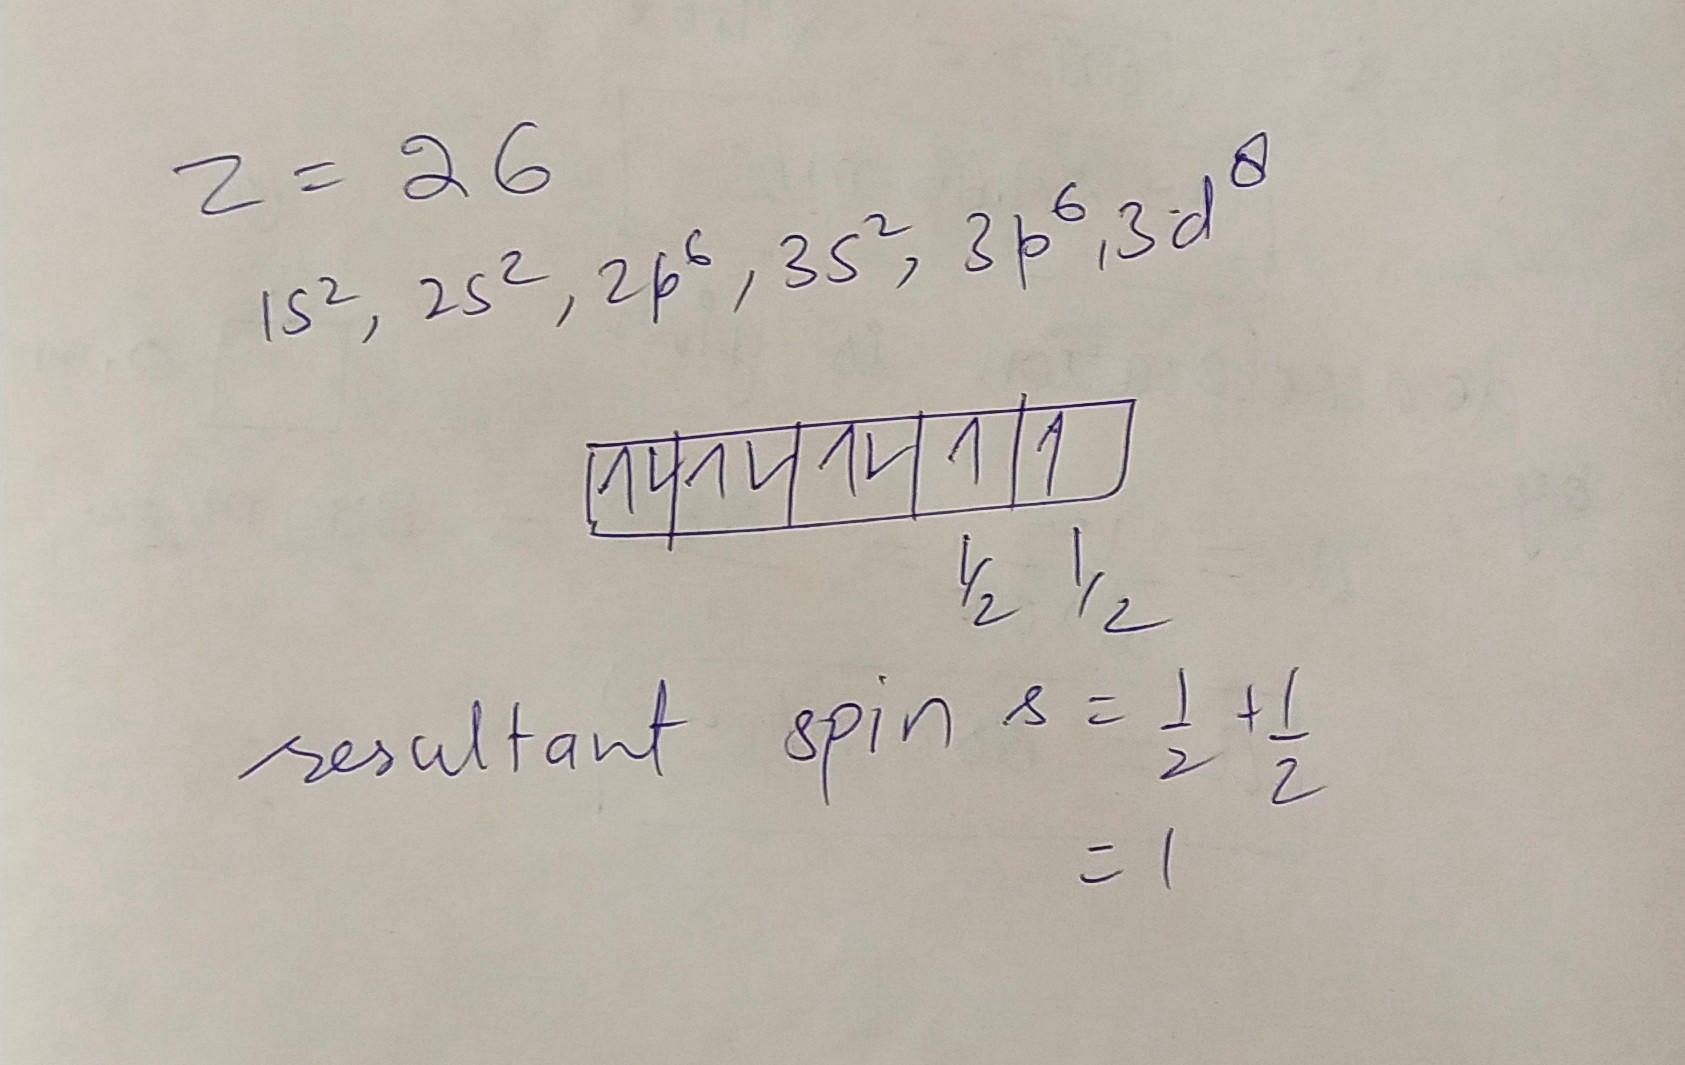 z = 26
1s², 2s², 2p⁶, 3s², 3p⁶, 3d⁸
1↓ 1↓ 1↓ 1 1
1/2 1/2
resultant spin s = 1/2 + 1/2
= 1